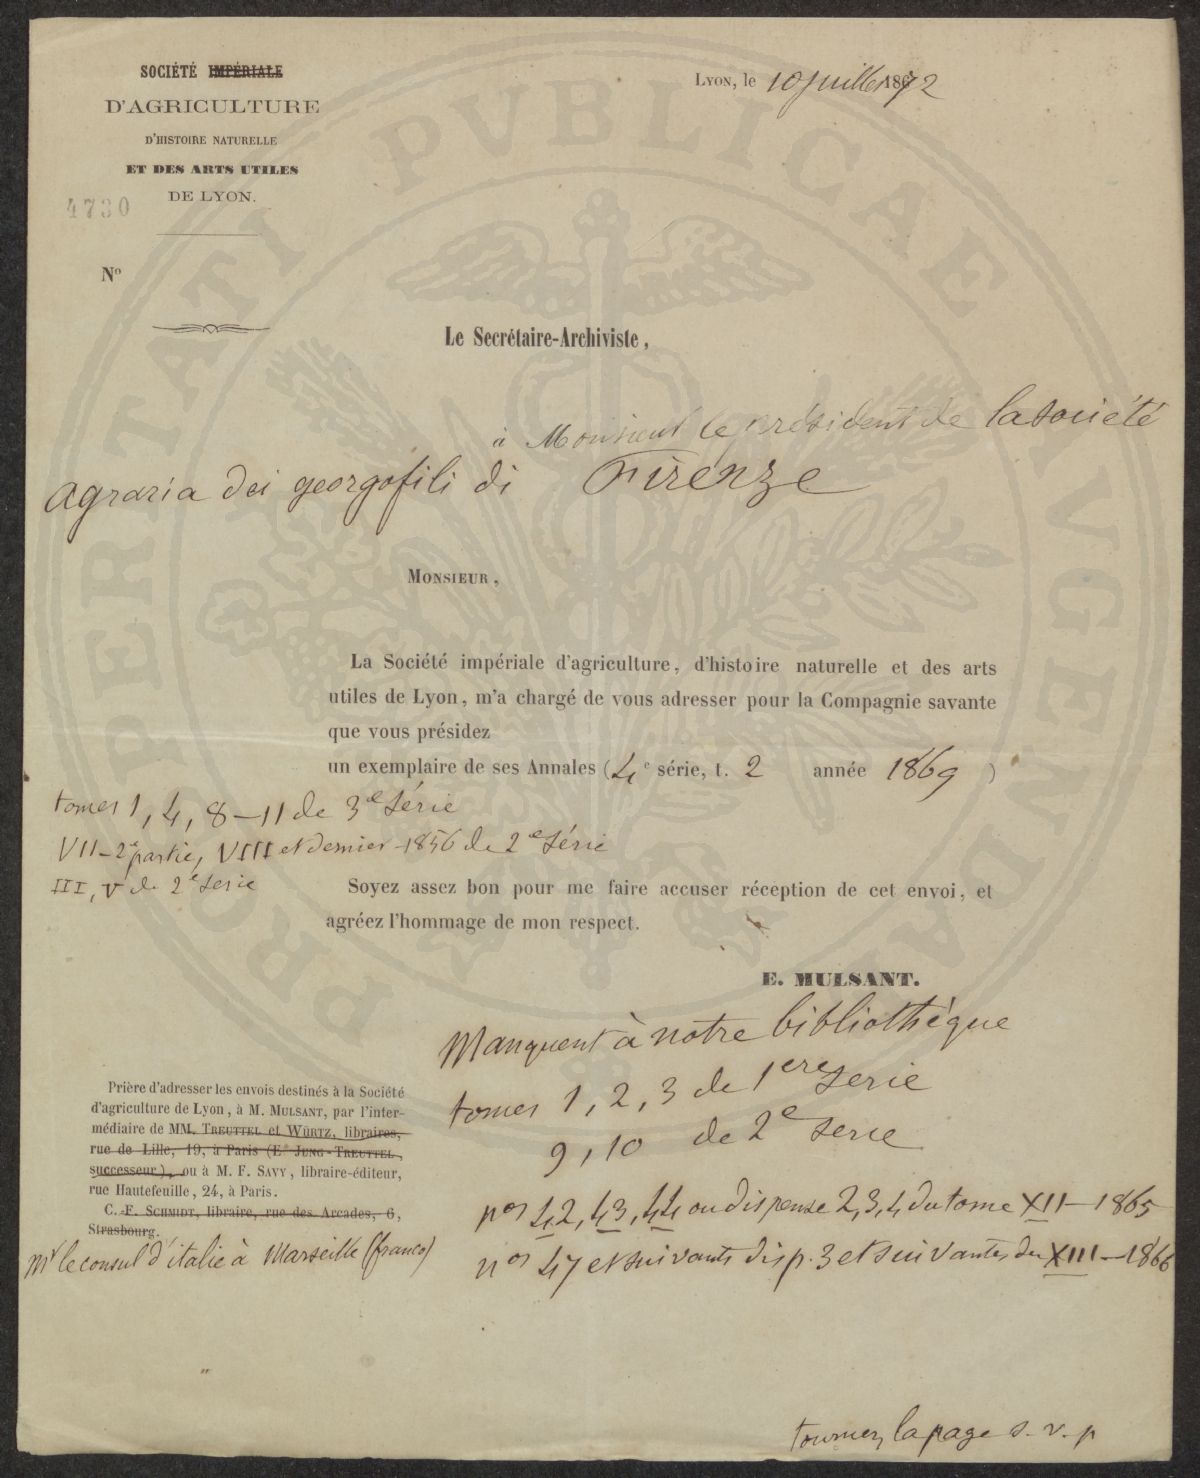 SOCIÉTÉ IMPÉRIALE
D'AGRICULTURE
D'HISTOIRE NATURELLE
ET DES ARTS UTILES
DE LYON.
4730
Nº
Lyon, le 10 juillet 1872
Le Secrétaire-Archiviste,
à Monsieur le président de la société
agraria dei georgofili di Firenze
Monsieur,
La Société impériale d'agriculture, d'histoire naturelle et des arts
utiles de Lyon, m'a chargé de vous adresser pour la Compagnie savante
que vous présidez
un exemplaire de ses Annales (4e série, t. 2 année 1869 )
tomes 1, 4, 8-11 de 3e série
VII-2e partie, VIII et dernier-1856 de 2e série
III, V de 2e serie
Soyez assez bon pour me faire accuser réception de cet envoi, et
agréez l'hommage de mon respect.
E. MULSANT.
Manquent à notre bibliothèque
tomes 1, 2, 3 de 1ere serie
9, 10 de 2e serie
nos 42, 43, 44 ou dispense 2, 3, 4 du tome XII-1865
nos 47 et suivants disp. 3 et suivantes du XIII-1866
Prière d'adresser les envois destinés à la Société
d'agriculture de Lyon, à M. Mulsant, par l'inter-
médiaire de MM. Treuttel et Würtz, libraires,
rue de Lille, 19, à Paris (Ee Jung-Treuttel,
successeur), ou à M. F. Savy, libraire-éditeur,
rue Hautefeuille, 24, à Paris.
C.-F. Schmidt, libraire, rue des Arcades, 6,
Strasbourg.
Mr le consul d'italie à Marseille (franco)
tournez la page s. v. p
PROSPERITATI PVBLICAE AVGENDAE